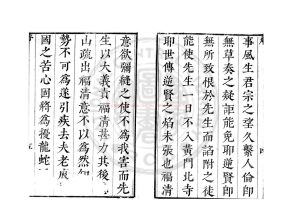 事風生君宗之望久繫人倫即
無草奏之疑詎能免耶逆賢即
無所致恨於先生而諂附之徒
能使先生一日不入黃門北寺
耶世傳逆賢之焰未張也福清
意欲彌縫之使不為我害而先
生以大義責福清甚力其後
山疏出福清意不以為然知
勢不可為遂引疾去夫老成
國之苦心固將為擾龍蛇